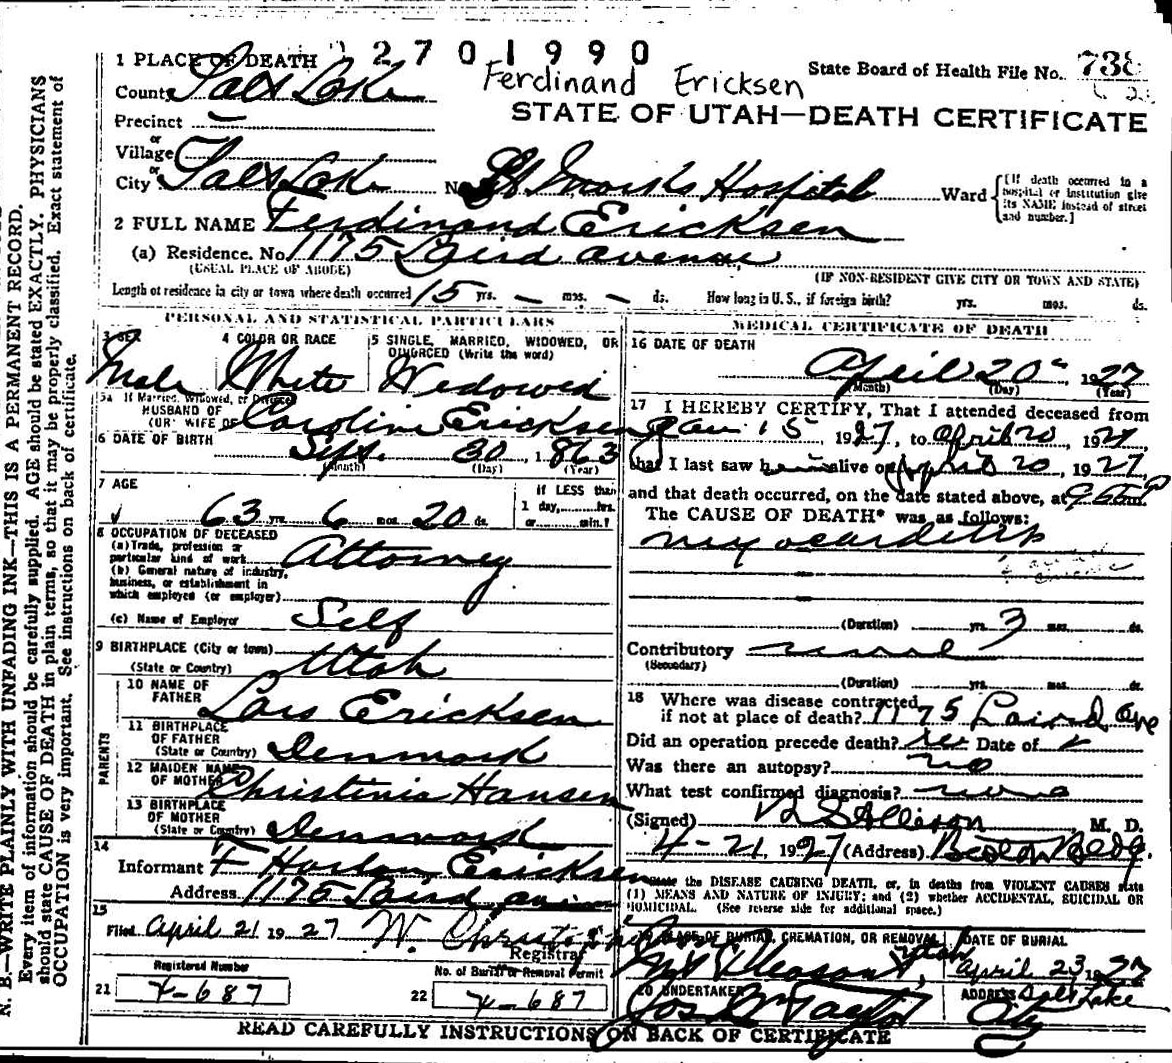 2 7 0 1 9 9 0
1 PLACE OF DEATH
Ferdinand Ericksen
State Board of Health File No. 738
County Salt Lake
STATE OF UTAH—DEATH CERTIFICATE
Precinct —
or
Village
or
City Salt Lake No. St Marks Hospital Ward [If death occurred in a hospital or institution give its NAME instead of street and number.]
2 FULL NAME Ferdinand Ericksen
(a) Residence. No. 1175 Laird avenue
(USUAL PLACE OF ABODE) (IF NON-RESIDENT GIVE CITY OR TOWN AND STATE)
Length of residence in city or town where death occurred 15 yrs. — mos. — ds. How long in U. S., if foreign birth? yrs. mos. ds.
PERSONAL AND STATISTICAL PARTICULARS
3 SEX
Male
4 COLOR OR RACE
White
5 SINGLE, MARRIED, WIDOWED, OR DIVORCED (Write the word)
Widowed
5a If Married, Widowed, or Divorced
HUSBAND OF
(OR) WIFE OF Caroline Ericksen
6 DATE OF BIRTH
Sept. 30, 1863
(Month) (Day) (Year)
7 AGE
63 yrs. 6 mos. 20 ds.
If LESS than
1 day, hrs.
or min.?
8 OCCUPATION OF DECEASED
(a) Trade, profession or
particular kind of work Attorney
(b) General nature of industry,
business, or establishment in
which employed (or employer)
(c) Name of Employer Self
9 BIRTHPLACE (City or town)
(State or Country) Utah
PARENTS
10 NAME OF
FATHER Lars Ericksen
11 BIRTHPLACE
OF FATHER
(State or Country) Denmark
12 MAIDEN NAME
OF MOTHER Christinia Hansen
13 BIRTHPLACE
OF MOTHER
(State or Country) Denmark
14
Informant F Harlan Ericksen
Address 1175 Laird
15
Filed April 21 1927
Registrar
Registered Number
21 4-687
No. of Burial or Removal Permit
22 4-687
MEDICAL CERTIFICATE OF DEATH
16 DATE OF DEATH
April 20 1927
(Month) (Day) (Year)
17 I HEREBY CERTIFY, That I attended deceased from
Jan 15, 1927, to April 20, 1927
that I last saw him alive on April 20, 1927
and that death occurred, on the date stated above, at
The CAUSE OF DEATH* was as follows:
myocarditis
(Duration) yrs. 3 mos. ds.
Contributory
(Secondary)
(Duration) yrs. mos. ds.
18 Where was disease contracted
if not at place of death? 1175 Laird Ave
Did an operation precede death? Date of
Was there an autopsy? no
What test confirmed diagnosis?
(Signed) Allison M. D.
4-21, 1927 (Address) Boston Bldg.
State the DISEASE CAUSING DEATH, or, in deaths from VIOLENT CAUSES state
(1) MEANS AND NATURE OF INJURY; and (2) whether ACCIDENTAL, SUICIDAL OR
HOMICIDAL. (See reverse side for additional space.)
19 PLACE OF BURIAL, CREMATION, OR REMOVAL
Mt Pleasant, Utah
DATE OF BURIAL
April 23 1927
20 UNDERTAKER
Jos Wm Taylor
ADDRESS Salt Lake
City
READ CAREFULLY INSTRUCTIONS ON BACK OF CERTIFICATE
N. B.—WRITE PLAINLY WITH UNFADING INK—THIS IS A PERMANENT RECORD.
Every item of information should be carefully supplied. AGE should be stated EXACTLY. PHYSICIANS
should state CAUSE OF DEATH in plain terms, so that it may be properly classified. Exact statement of
OCCUPATION is very important. See instructions on back of certificate.